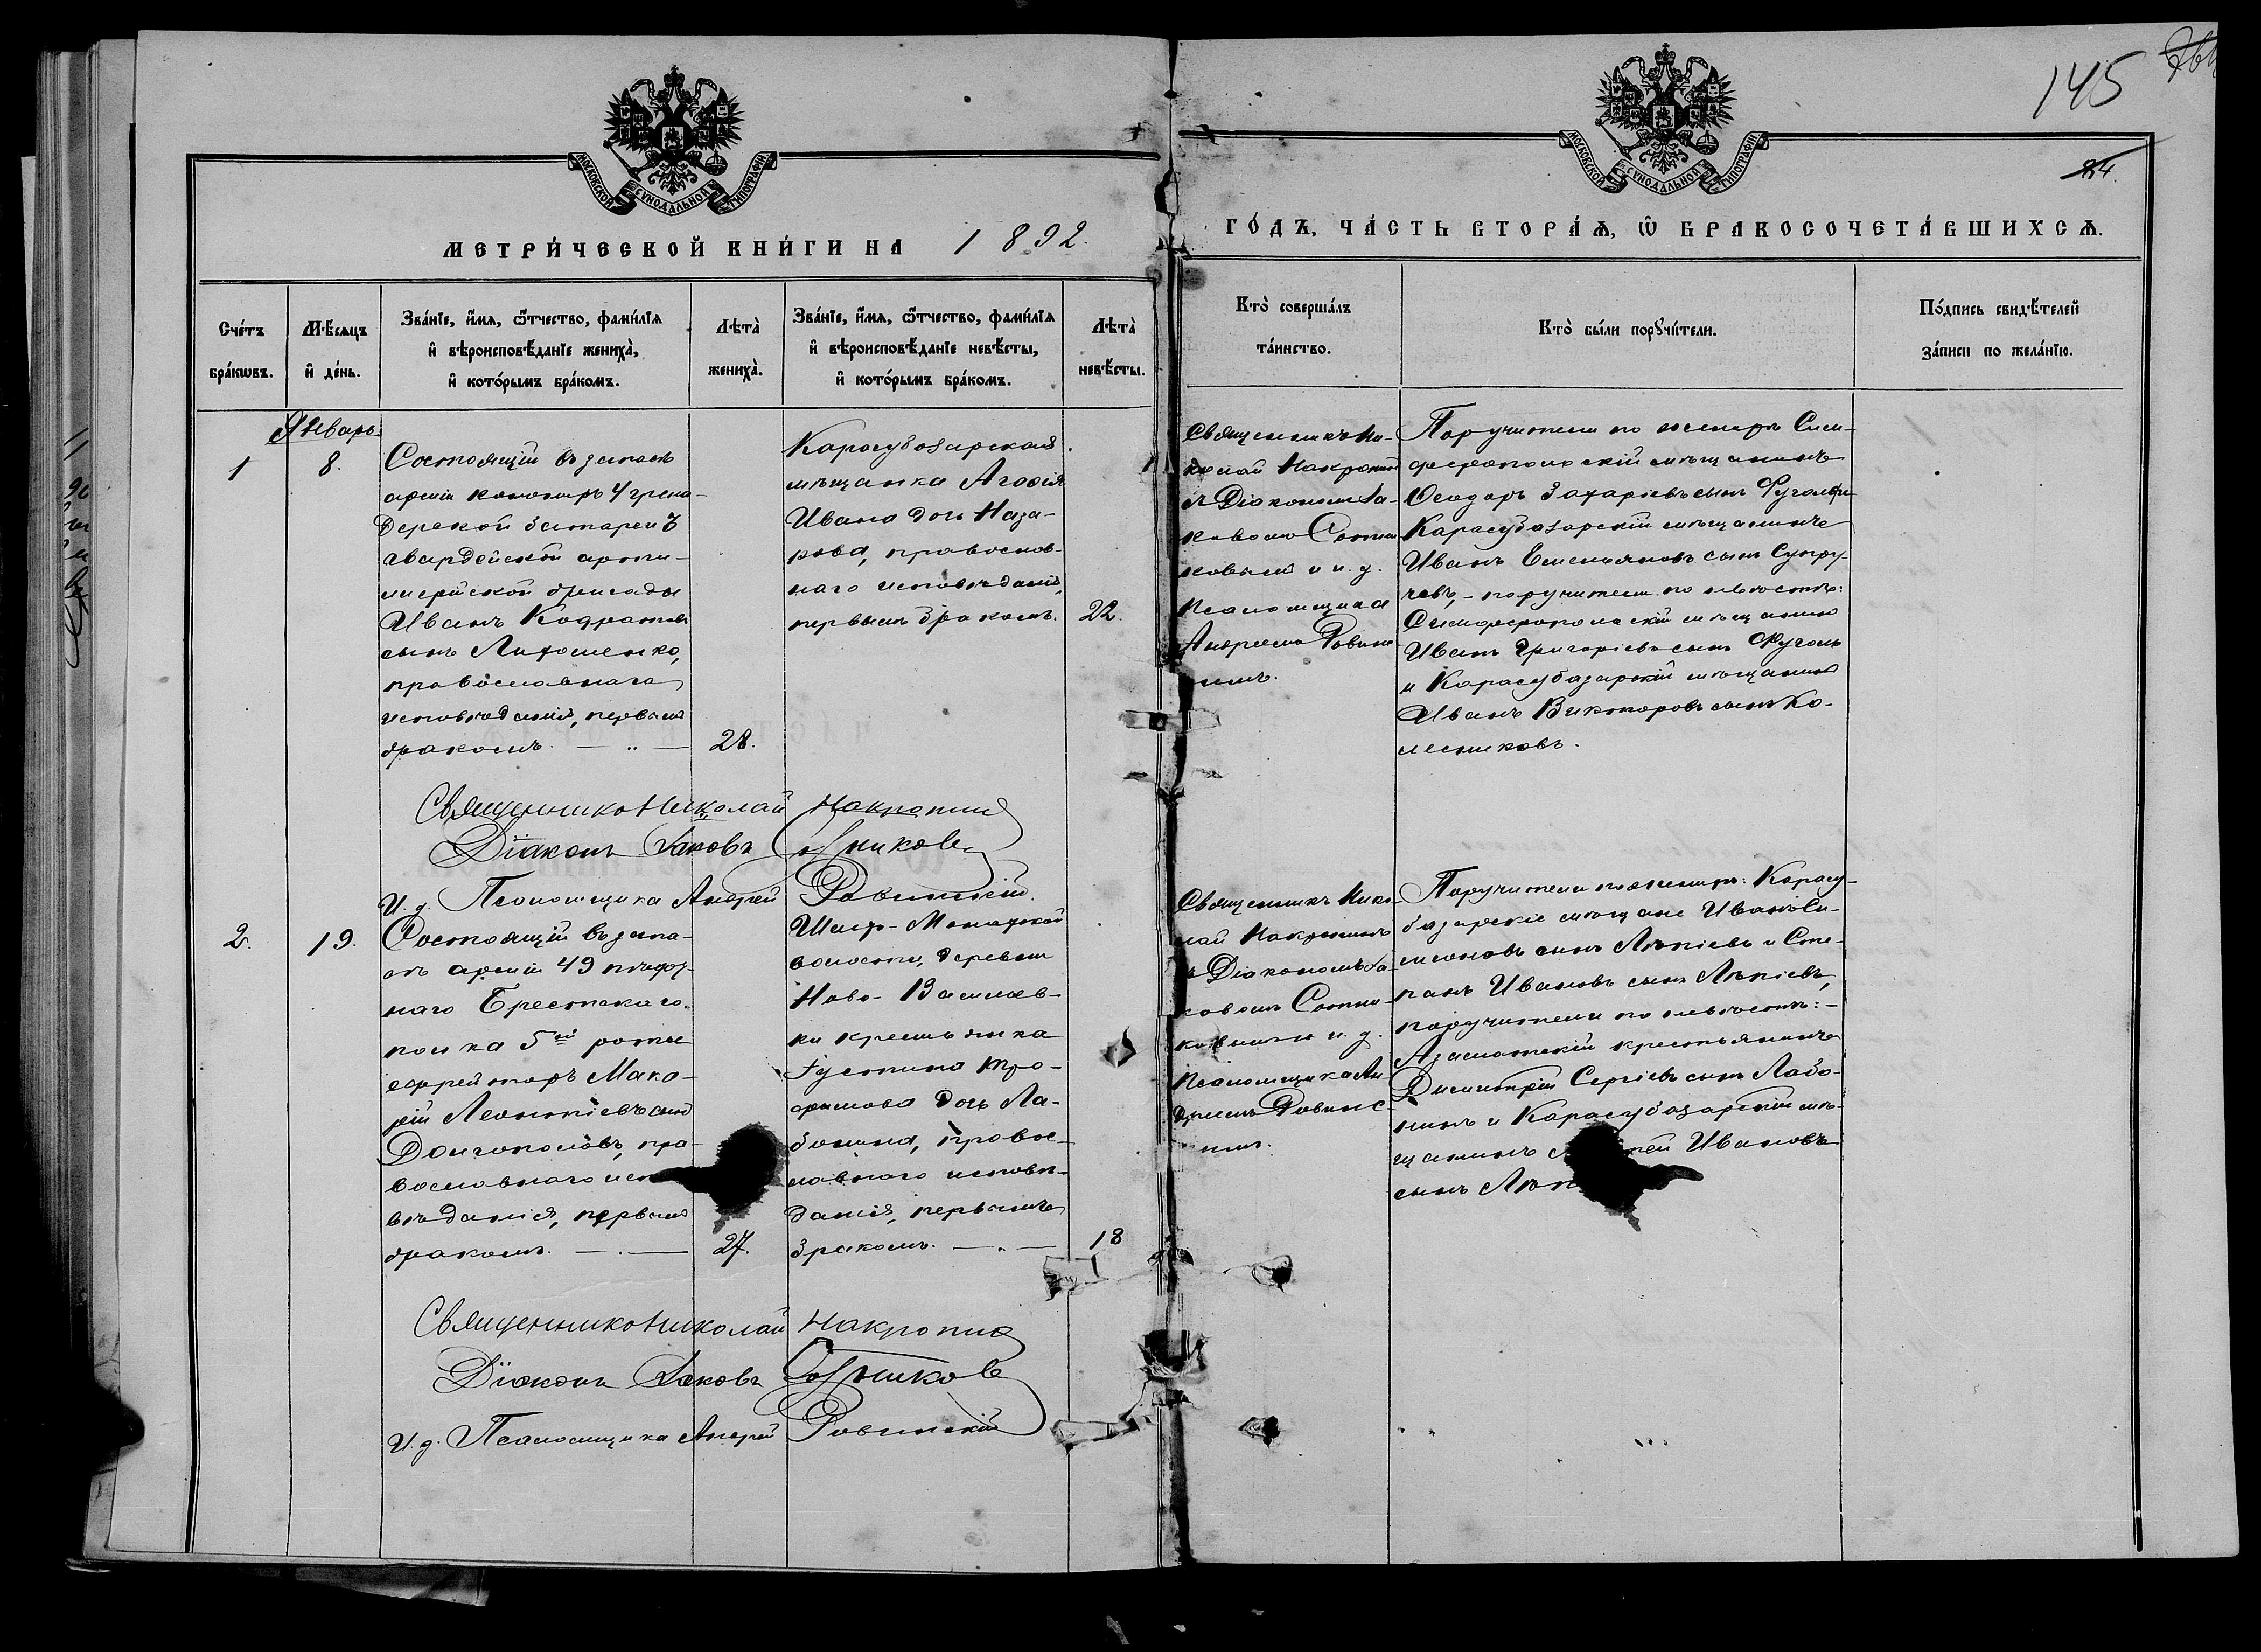 145
84.
МОСКОВСКОЙ СѴНОДАЛЬНОЙ ТИПОГРАФІИ
МОСКОВСКОЙ СѴНОДАЛЬНОЙ ТИПОГРАФІИ
МЕТРИ́ЧЕСКОЙ КНИ́ГИ НА 1892.
ГО́ДЪ, ЧА́СТЬ ВТОРА́Ѧ, Ѿ БРАКОСОЧЕТА́ВШИХСѦ.
Сче́тъ
бра́кѡвъ.
Мѣ́сяцъ
и҆ де́нь.
Зва́нїе, и҆́мѧ, ѻ҆́тчество, фами́лїѧ
и҆ вѣроисповѣ́данїе жениха̀,
и҆ кото́рымъ бра́комъ.
Лѣта̀
жениха̀.
Зва́нїе, и҆́мѧ, ѻ҆́тчество, фами́лїѧ
и҆ вѣроисповѣ́данїе невѣ́сты,
и҆ кото́рымъ бра́комъ.
Лѣта̀
невѣ́сты.
Кто̀ соверша́лъ
та́инство.
Кто̀ бы́ли порꙋчи́тели.
По́дпись свидѣ́телей
за́писи по жела́нїю.
Январь
1
8.
Состоящій въ запасѣ
арміи канониръ 4 грена-
дерской батареи
гвардейской арти-
лерійской бригады
Иванъ Кодратовъ
сынъ Литошенко,
православнаго
исповѣданія, первымъ
бракомъ. — „ —
28.
Карасубазарская
мѣщанка Агафія
Иванова дочь Наза-
рова, православ-
наго исповѣданія,
первымъ бракомъ.
22.
Священникъ Ни-
колай Накропинъ
съ Діакономъ Іа-
ковомъ Сотни
ковымъ и и. д.
Псаломщика
Андреемъ Ровин
нимъ.
Поручители по женихѣ Сим-
феропольскій мѣщанинъ
Ѳеодоръ Захаріевъ сынъ
Карасубазарскій мѣщанинъ
Иванъ Емельяновъ сынъ Супру-
чевъ, - поручители по невѣстѣ:
Симферопольскій мѣщанинъ
Иванъ Григоріевъ сынъ
и Карасубазарскій мѣщанинъ
Иванъ Викторовъ сынъ Ко-
лесниковъ.
Священникъ Николай Накропинъ
Діаконъ Іаковъ Сотниковъ
И. д. Псаломщика Андрей Ровинскій.
2.
19.
Состоящій въ запа-
сѣ арміи 49 пѣхот-
наго Брестскаго
полка 5й роты
ефрейторъ Мака-
рій Леонтіевъ сынъ
Долгополовъ, пра-
вославнаго исп
вѣданія, первымъ
бракомъ. — . —
27.
Шейх-Монахской
волости, деревни
Ново-Васильев-
ки крестьянка
Іустина Тро-
фимова дочь Ла-
бонина, правос-
лавнаго исповѣ-
данія, первымъ
бракомъ. — „ —
18
Священникъ Нико-
лай Накропинъ
съ Діакономъ Іа-
ковомъ Сотни-
ковымъ и и. д.
Псаломщика Ан
дреемъ Ровинс-
кимъ.
Поручители по женихѣ: Карасу-
базарскіе мѣщане Иванъ Си-
меоновъ сынъ Лѣпіевъ и Сте-
панъ Ивановъ сынъ Лѣпіевъ,
поручители по невѣстѣ: -
Азаматскій крестьянинъ
Димитрій Сергіевъ сынъ Лабо-
нинъ и Карасубазарскій мѣ-
щанинъ Ивановъ
сынъ
Священникъ Николай Накропинъ
Діаконъ Іаковъ Сотниковъ
И. д. Псаломщика Андрей Ровинскій